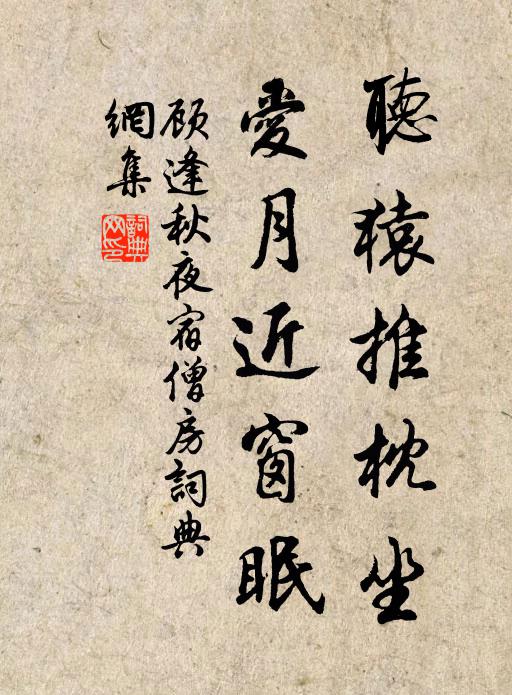 聽猿推枕坐
愛月近窗眠
顾逢秋夜宿僧房詞典
網集
詞典
网印